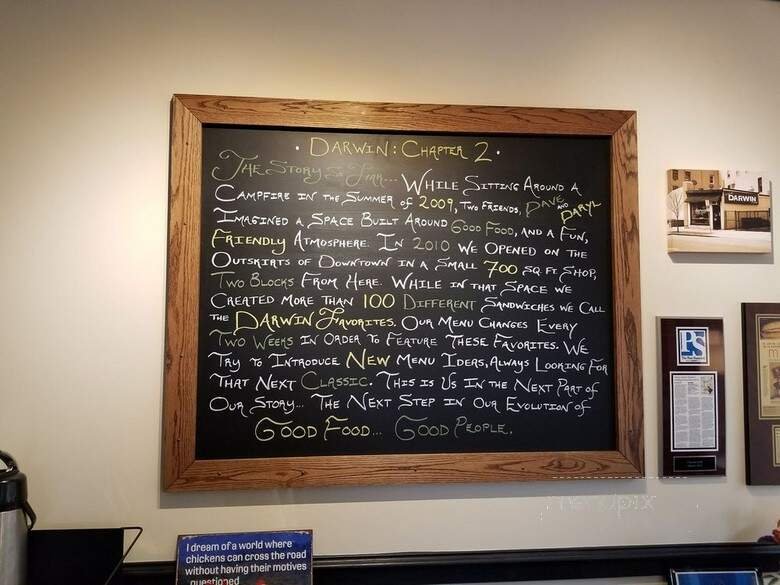 • DARWIN: CHAPTER 2 •
THE STORY SO FAR... WHILE SITTING AROUND A
CAMPFIRE IN THE SUMMER OF 2009, TWO FRIENDS, DAVE AND DARYL
IMAGINED A SPACE BUILT AROUND GOOD FOOD, AND A FUN,
FRIENDLY ATMOSPHERE. IN 2010 WE OPENED ON THE
OUTSKIRTS OF DOWNTOWN IN A SMALL 700 SQ. FT. SHOP,
TWO BLOCKS FROM HERE. WHILE IN THAT SPACE WE
CREATED MORE THAN 100 DIFFERENT SANDWICHES WE CALL
THE DARWIN FAVORITES. OUR MENU CHANGES EVERY
TWO WEEKS IN ORDER TO FEATURE THESE FAVORITES. WE
TRY TO INTRODUCE NEW MENU IDEAS, ALWAYS LOOKING FOR
THAT NEXT CLASSIC. THIS IS US IN THE NEXT PART OF
OUR STORY... THE NEXT STEP IN OUR EVOLUTION OF
GOOD FOOD... GOOD PEOPLE.
DARWIN
I dream of a world where
chickens can cross the road
without having their motives
questioned